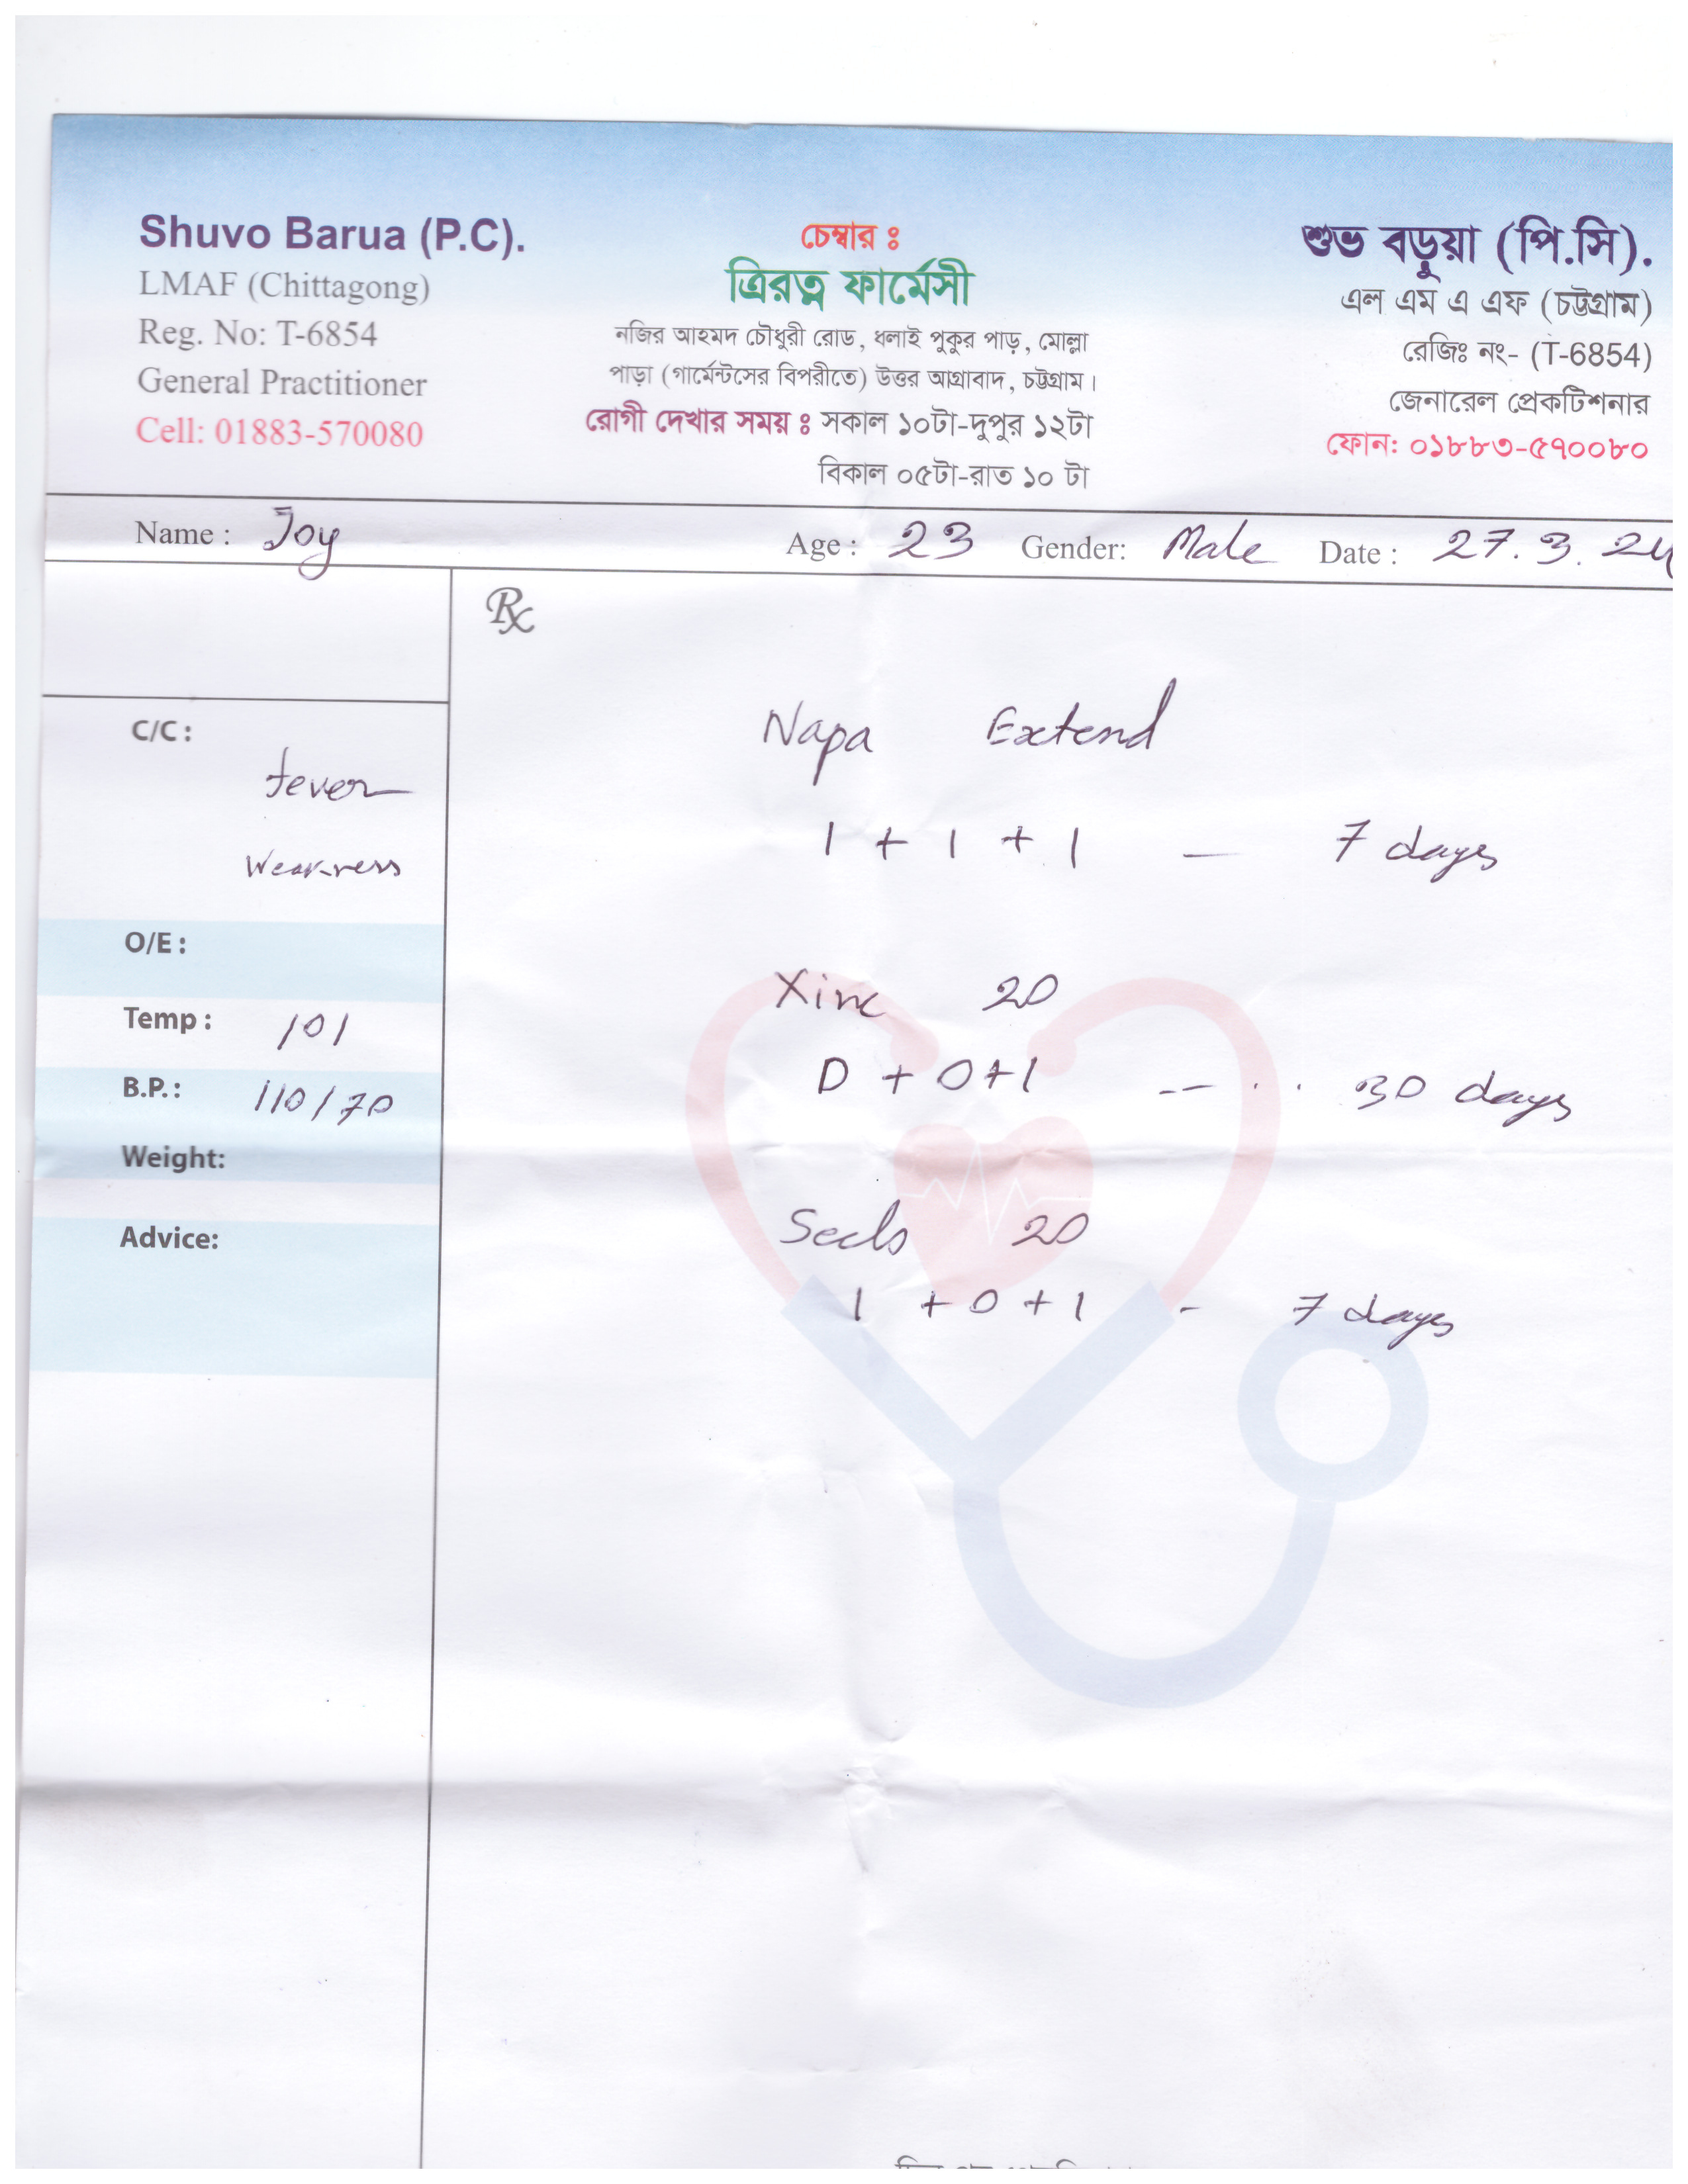 Shuvo Barua (P.C).
LMAF (Chittagong)
Reg. No: T-6854
General Practitioner
Cell: 01883-570080
চেম্বার ঃ
ত্রিরত্ন ফার্মেসী
নজির আহমদ চৌধুরী রোড, ধলাই পুকুর পাড়, মোল্লা
পাড়া (গার্মেন্টসের বিপরীতে) উত্তর আগ্রাবাদ, চট্টগ্রাম।
রোগী দেখার সময় ঃ সকাল ১০টা-দুপুর ১২টা
বিকাল ০৫টা-রাত ১০ টা
শুভ বড়ুয়া (পি.সি).
এল এম এ এফ (চট্টগ্রাম)
রেজিঃ নং- (T-6854)
জেনারেল প্রেকটিশনার
ফোন: ০১৮৮৩-৫৭০০৮০
Name : Joy Age : 23 Gender: Male Date : 27.3.24
C/C :
fever
Weakness
O/E :
Temp : 101
B.P. : 110/70
Weight:
Advice:
Rx
Napa Extend
1 + 1 + 1 — 7 days
Xinc 20
0 + 0 + 1 -- . . 30 days
Seclo 20
1 + 0 + 1 - 7 days